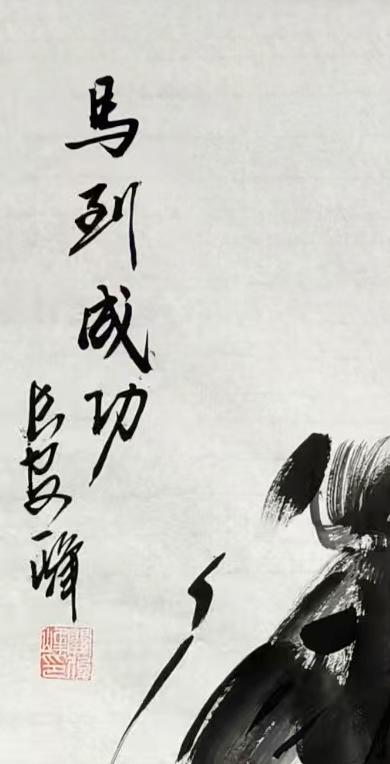 馬到成功
长安